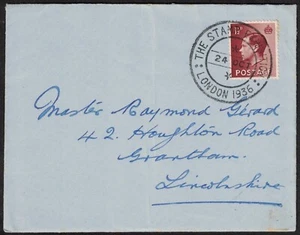 THE STAMP
24
LONDON 1936
POSTAGE
Master Raymond Gerard
42. Houghton Road
Grantham.
Lincolnshire